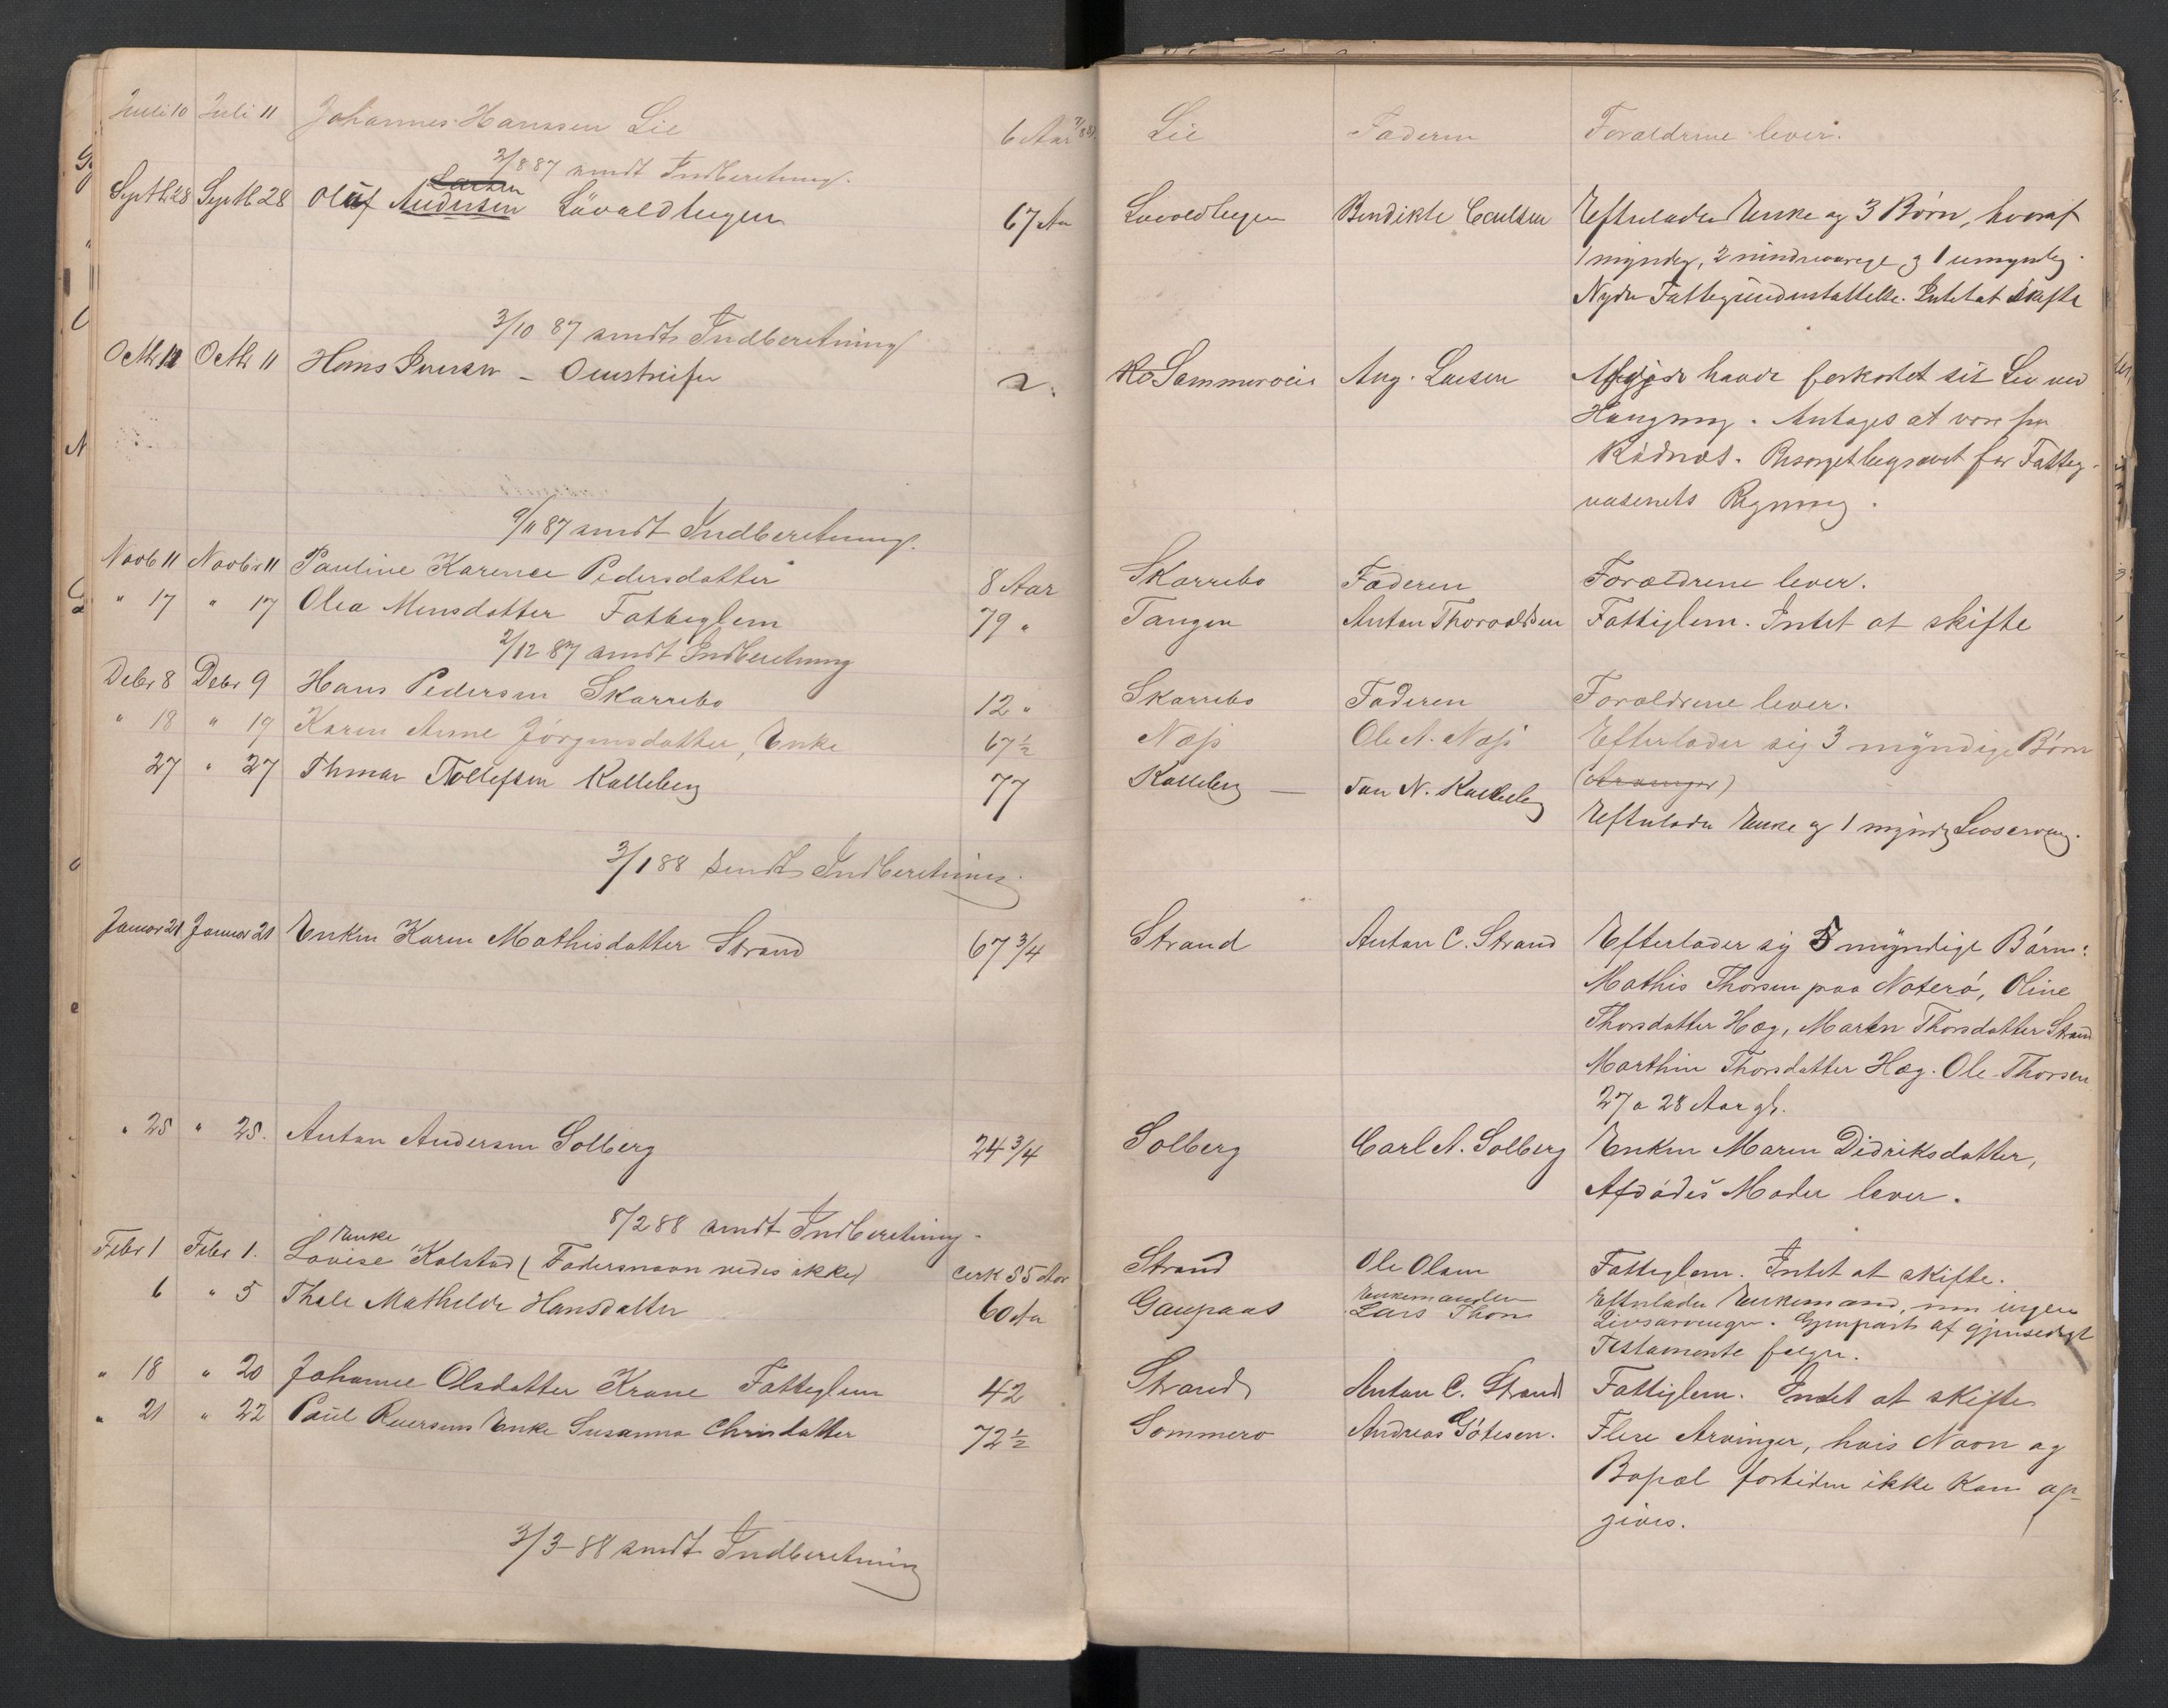 Juli 10 Juli 11 Johannes Hanssen Lie 6 Aar Lie Faderen Forældrene lever.
2/8 87 sendt Indberetning.
Larsen
Septb 28 Septb 28 Oluf Andersen Lövaldhugen 67 Aar Bendikte Efterlader Enke og 3 Børn, hvoraf
1 myndig, 2 mindreaarige og 1 umyndig.
Nyder Fattigunderstøttelse. Intet at skifte
3/10 87 sendt Indberetning
Octbr 11 Octbr 11 Hans Iversen - Omstreifer Aug. Larsen Afdøde havde forkortet sit Liv ved
Hængning. Antages at være fra
Rødnæs. Besørget begravet for Fattig-
væsenets Regning.
9/11 87 sendt Indberetning.
Novb 11 Novbr 11 Pauline Karence Pedersdatter 8 Aar Skarrebo Faderen Forældrene lever.
" 17 " 17 Olea Monsdatter Fattiglem 79 " Tangen Anton Thorvaldsen Fattiglem. Intet at skifte
2/12 87 sendt Indberetning
Debr 8 Debr 9 Hans Pedersen Skarrebo 12 " Skarrebo Faderen Forældrene lever.
" 18 " 19 Karen Anne Jörgensdatter, Enke 67 1/2 Næs Ole A. Næs Efterlader sig 3 myndige Børn
(Arvinger)
27 " 27 Thomas Tollefsen Kalleberg 77 Kalleberg — Jan N. Kalleberg
Efterlader Enke og 1 myndig Livsarving.
3/1 88 sendt Indberetning.
Januar 21 Januar 21 Enken Karen Mathisdatter Strand 67 3/4 Strand Anton C. Strand Efterlader sig 5 myndige Börn:
Mathis Thorsen paa Noterö, Oline
Thorsdatter Hæg, Maren Thorsdatter Strand
Marthin Thorsdatter Hæg. Ole Thorsen
27 a 28 Aar gl.
" 25 " 25. Anton Andersen Solberg 24 3/4 Solberg Carl A. Solberg Enken Maren Didriksdatter,
Afdödes Moder lever.
8/2 88 sendt Indberetning.
Enke
Febr 1 Febr 1. Lovise Kolstad (Fadersnavn vides ikke) cirk 55 Aar Strand Ole Olsen Fattiglem. Intet at skifte.
6 " 5 Thale Mathilde Hansdatter 60 Aar Gaupaas Enkemanden Lars Thom Efterlader Enkemand, men ingen
Livsarvinger. Gjenpart af gjensidigt
Testamente følger.
" 18 " 20 Johanne Olsdatter Krane Fattiglem 42 Strand Anton C. Strand Fattiglem. Intet at skifte
" 21 " 22 Paul Reiersens Enke Susanna Chrisdatter 72 1/2 Sommero Andreas Götesen. Flere Arvinger, hvis Navn og
Bopæl fortiden ikke kan op-
gives.
3/3-88 sendt Indberetning